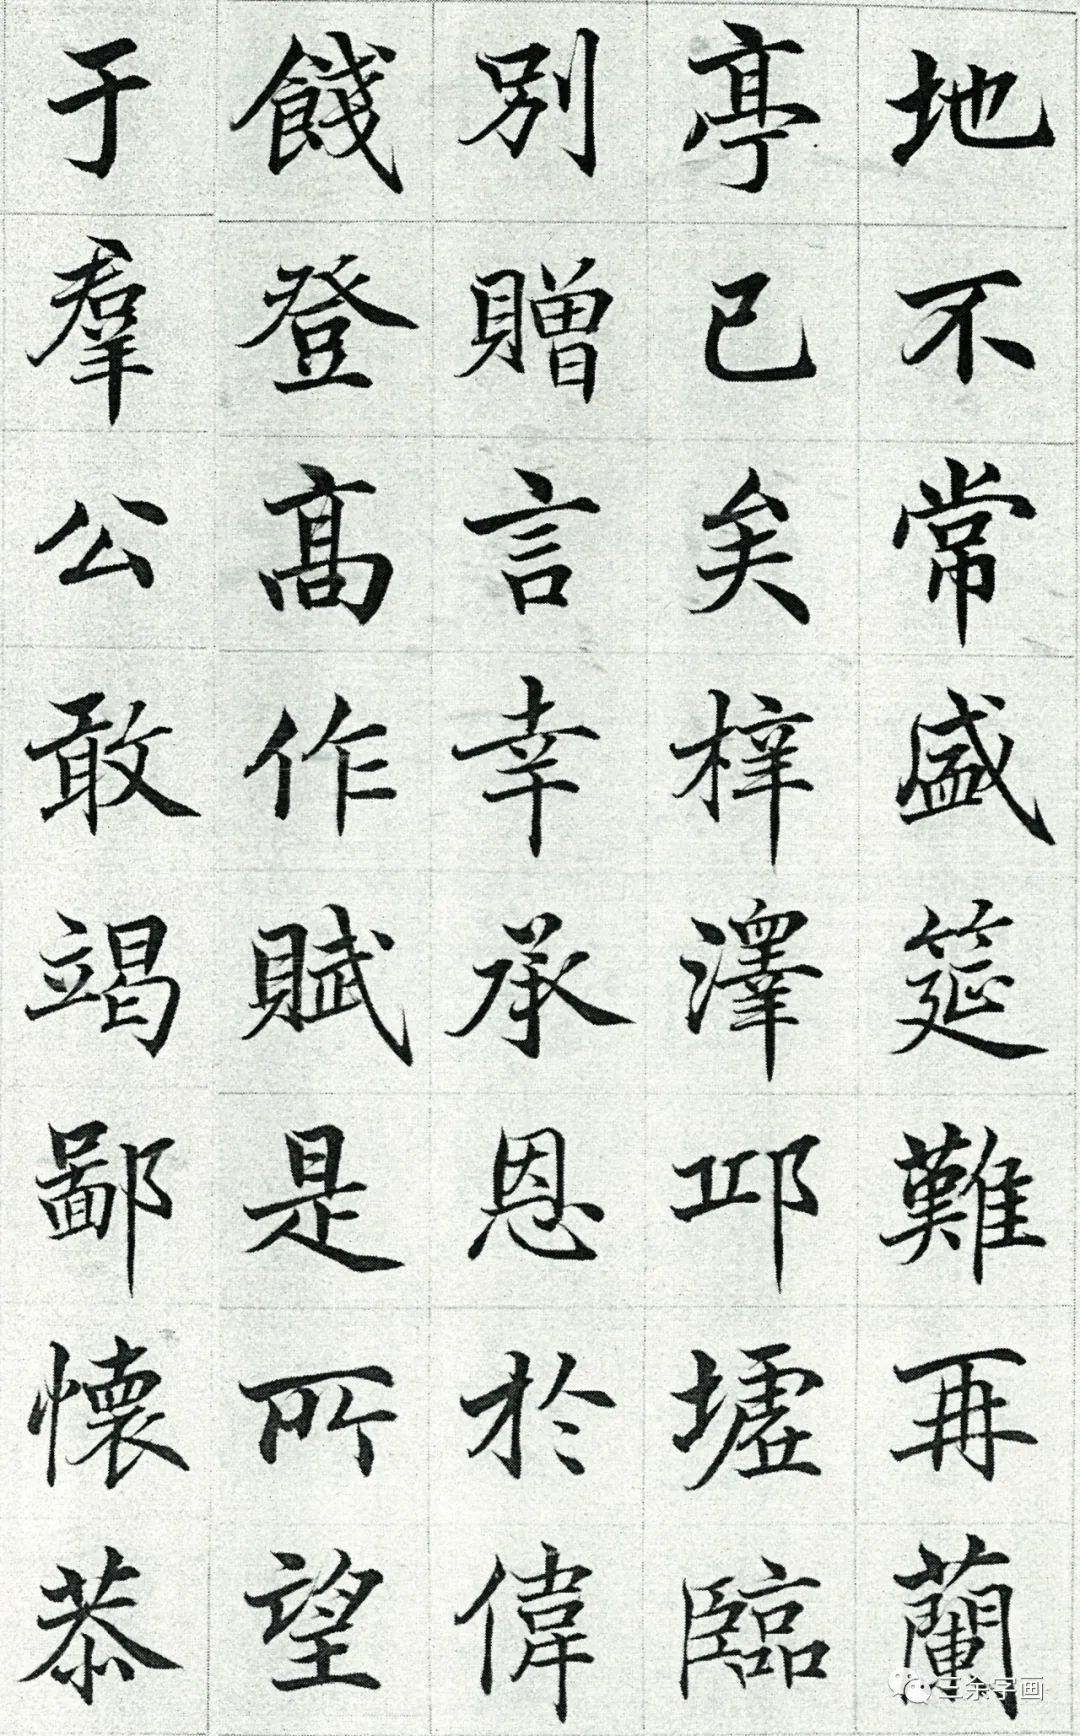 地不常盛筵難再蘭
亭已矣梓澤邱墟臨
別贈言幸承恩於偉
餞登高作賦是所望
于羣公敢竭鄙懷恭
三余字画